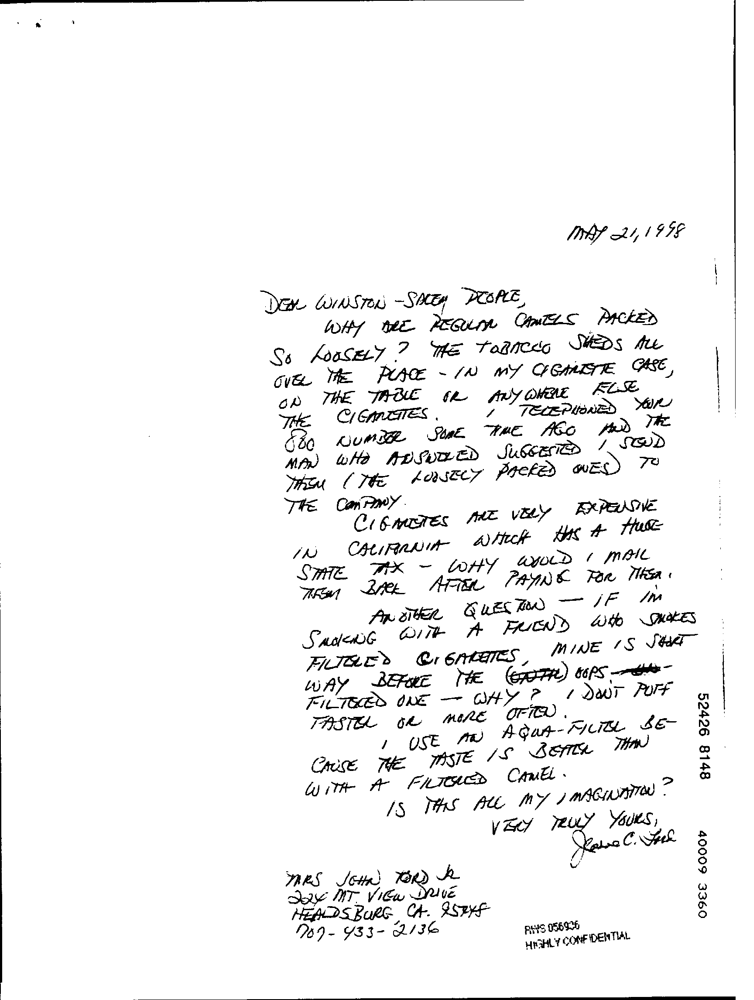 MAY 21, 1998
DEAR WINSTON-SALEM PEOPLE,
WHY ARE REGULAR CAMELS PACKED
SO LOOSELY? THE TOBACCO SHEDS ALL
OVER THE PLACE - IN MY CIGARETTE CASE,
ON THE TABLE OR ANYWHERE ELSE
THE CIGARETTES. I TELEPHONED YOUR
800 NUMBER SOME TIME AGO AND THE
MAN WHO ANSWERED SUGGESTED I SEND
THEM (THE LOOSELY PACKED ONES) TO
THE COMPANY.
CIGARETES ARE VERY EXPENSIVE
IN CALIFORNIA WHICH HAS A HUGE
STATE TAX - WHY WOULD I MAIL
THEM BACK AFTER PAYING FOR THEM.
ANOTHER QUESTION - IF IM
SMOKING WITH A FRIEND WHO SMOKES
FILTERED CIGARETTES, MINE IS SHORT
WAY BEFORE THE OOPS -
FILTERED ONE - WHY? I DONT PUFF
FASTER OR MORE OFTEN.
I USE AN AQUA-FILTER BE-
CAUSE THE TASTE IS BETTER THAN
WITH A FILTERED CAMEL.
IS THIS ALL MY IMAGINATION?
VERY TRULY YOURS,
C.
MRS JOHN FORD JR
224 MT VIEW DRIVE
HEALDSBURG, CA. 95448
707-433-2136
RHS 056936
HIGHLY CONFIDENTIAL
52426 8148
40009 3360